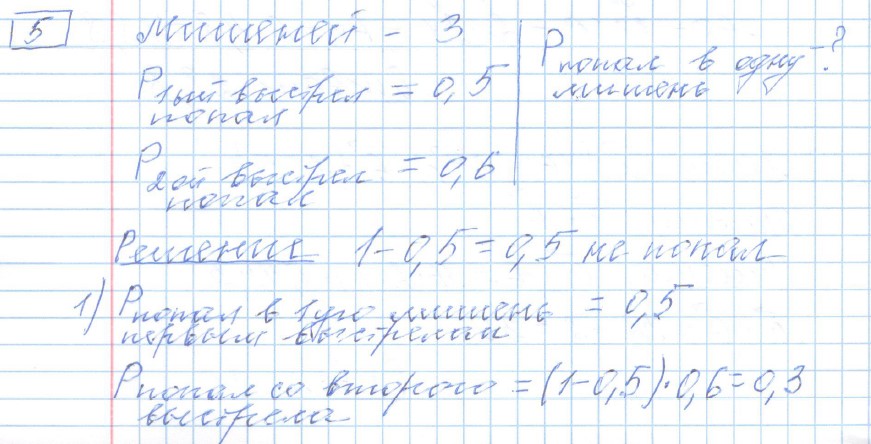 5
Мишеней - 3
P попал в одну - ?
мишень
P 1ый выстрел = 0,5
попал
P 2ой выстрел = 0,6
попал
Решение 1-0,5=0,5 не попал
1) P попал в 1ую мишень = 0,5
первым выстрелам
P попал со второго = (1-0,5)·0,6=0,3
выстрела